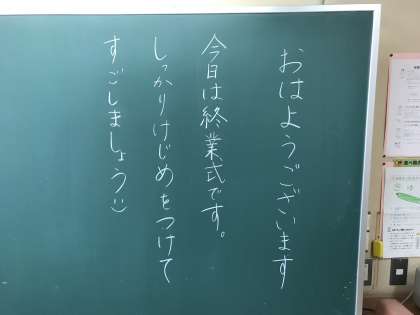 おはようございます
今日は終業式です。
しっかりけじめをつけて
すごしましょう